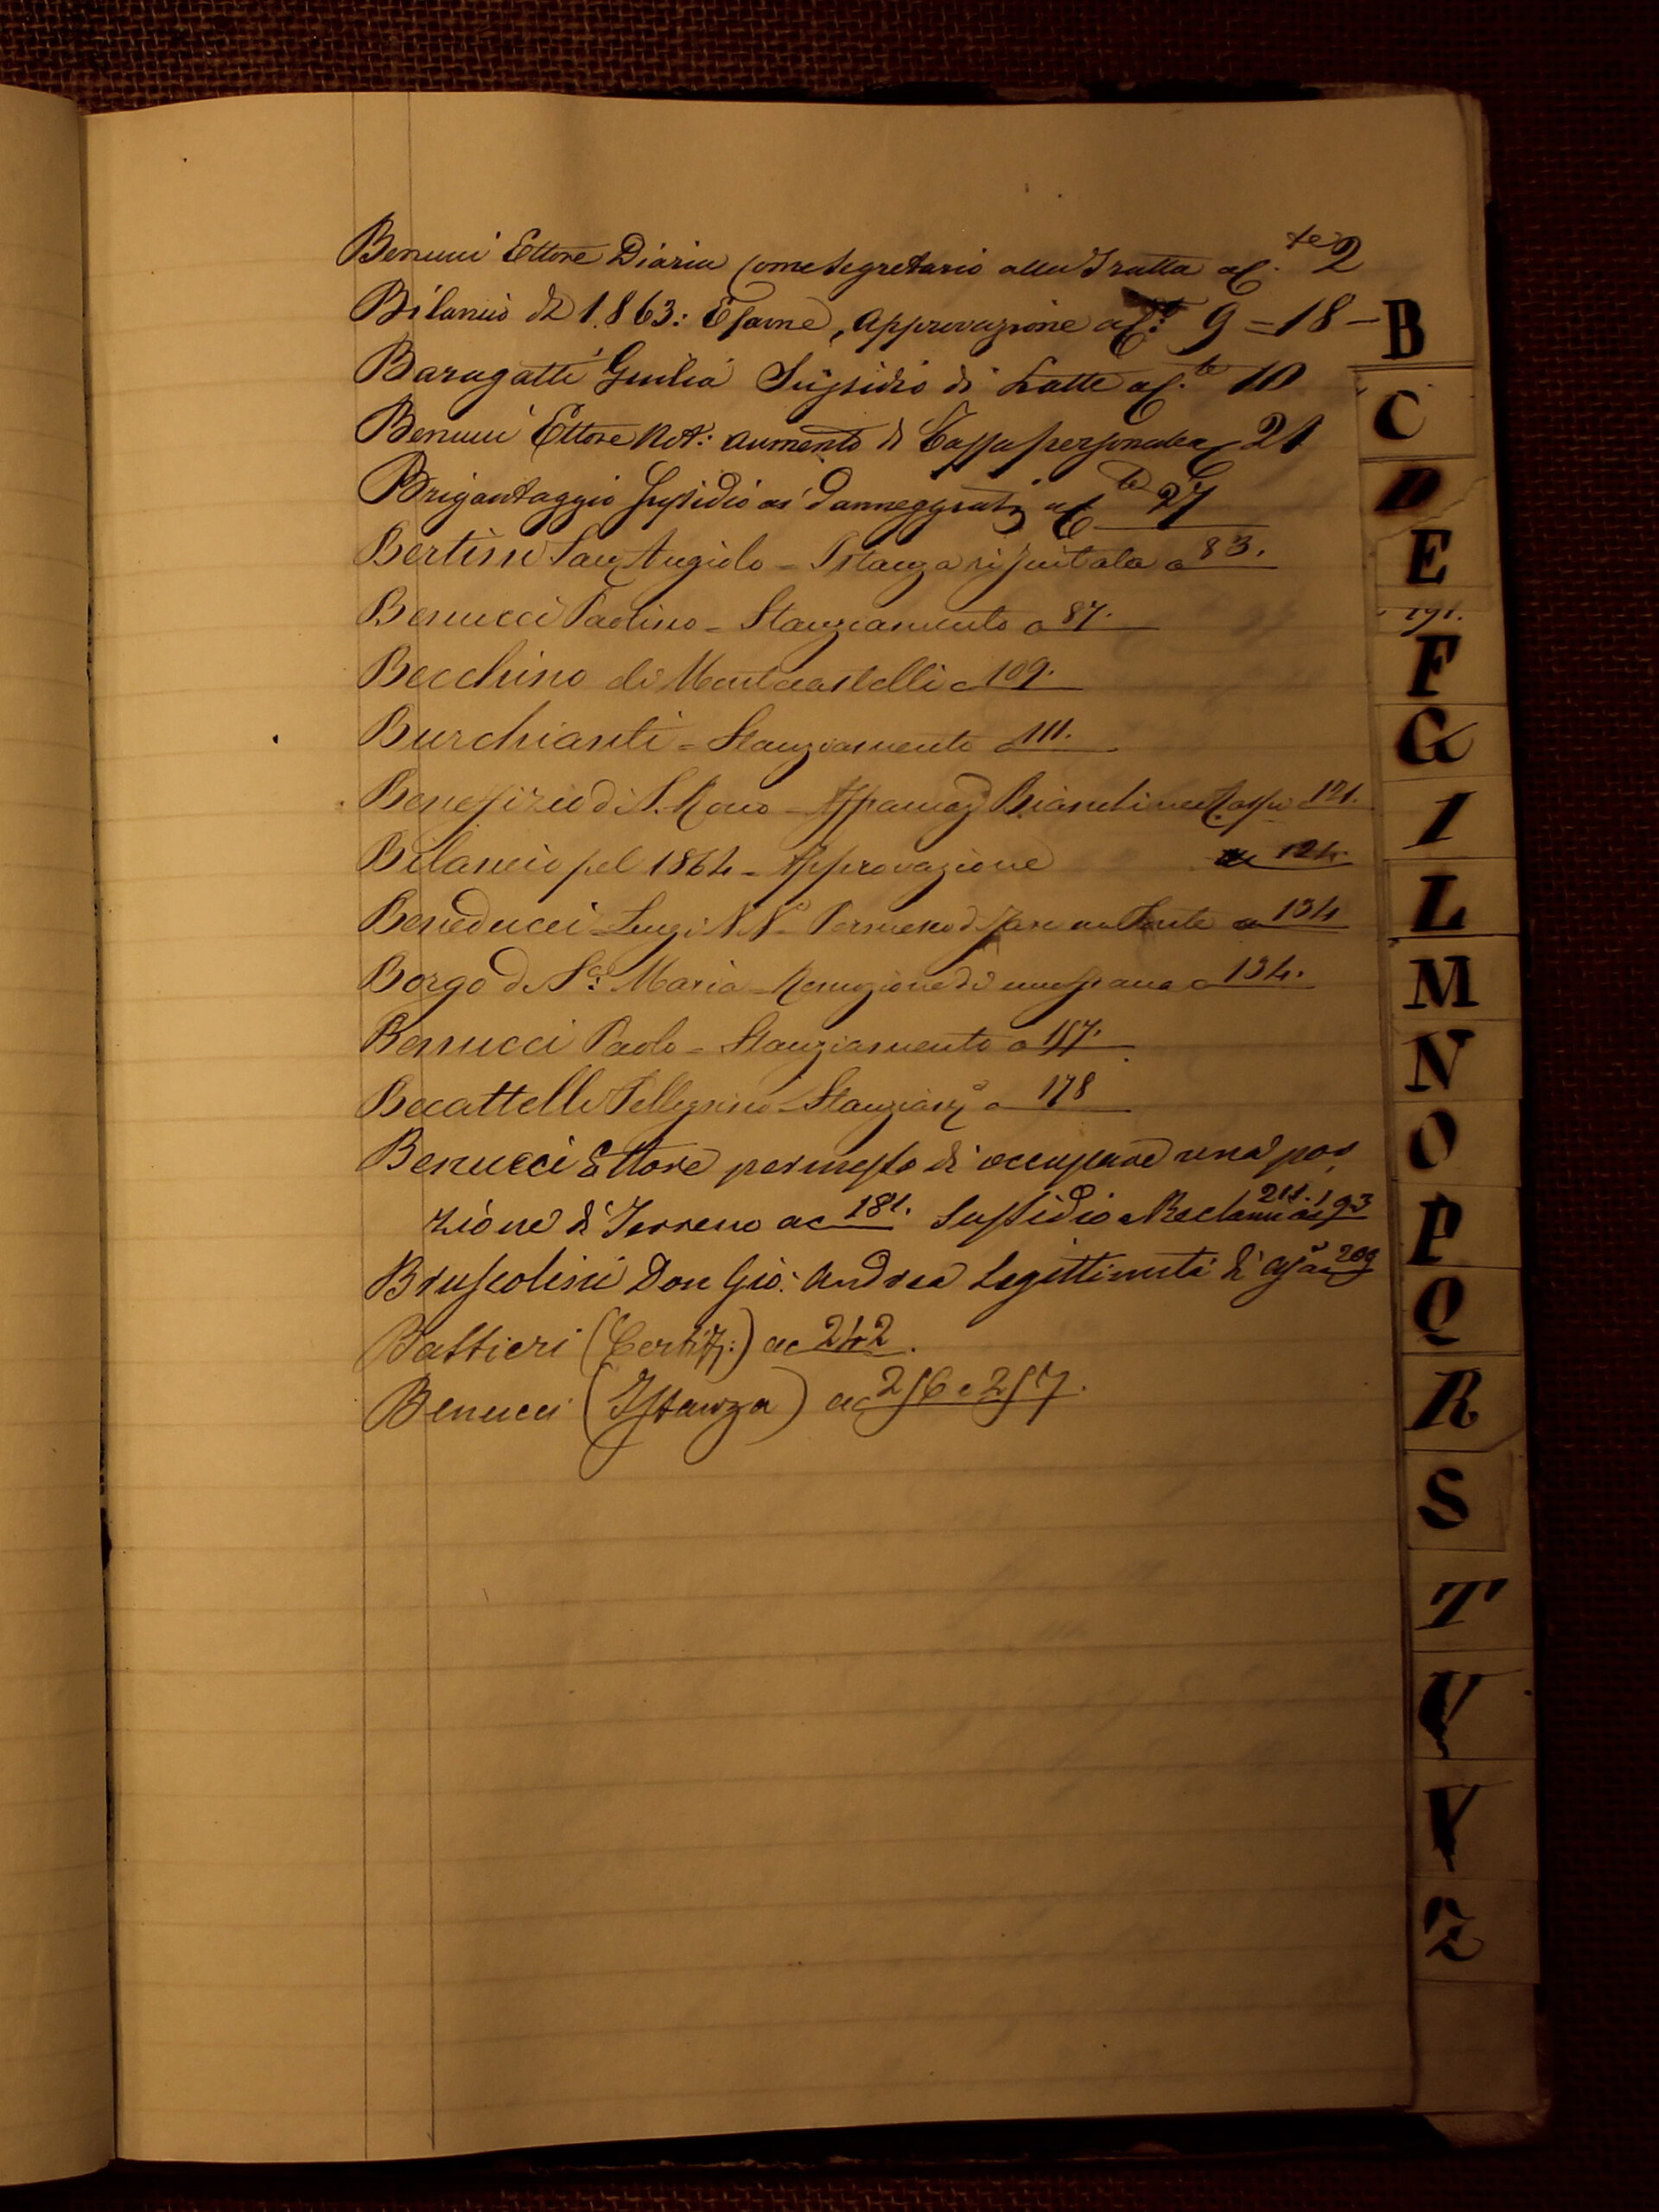 Benucci Ettore Diaria come Segretario alla Tratta a C.te 2
Bilancio del 1863: Esame, Approvazione a C.te: 9 = 18 -
Baragatti Giulia Sussidio di Latte a C.te 10
Benucci Ettore Not: aumento di Tassa personale a C 21
Brigantaggio Sussidio ai danneggiati a C.te 27
Bertini Angiolo - Istanza a 83.
Benucci Paolino - Stanziamento a 87.
Becchino di Montecastelli a 109.
Burchianti - Stanziamento a 111.
Benefizio di S. Rocco - Bianchi 121.
Bilancio pel 1864 - Approvazione 124.
Beneducci Luigi NN - Permesso di fare a 134
Borgo di S.a Maria - Remozione di a 134.
Benucci Paolo - Stanziamento a 157.
Becattelli Pellegrino - Stanziam.o a 178
Benucci Ettore permesso di occupare una por
zione di Terreno ac 181. Sussidio e Reclami ac 211. 193
Bruscolini Don Gio: Andrea Legittimità di 209
Battieri (Certif:) ac 242.
Benucci (Istanza) ac 256 e 257.
B
C
D
E
191.
F
G
I
L
M
N
O
P
Q
R
S
T
V
V
Z